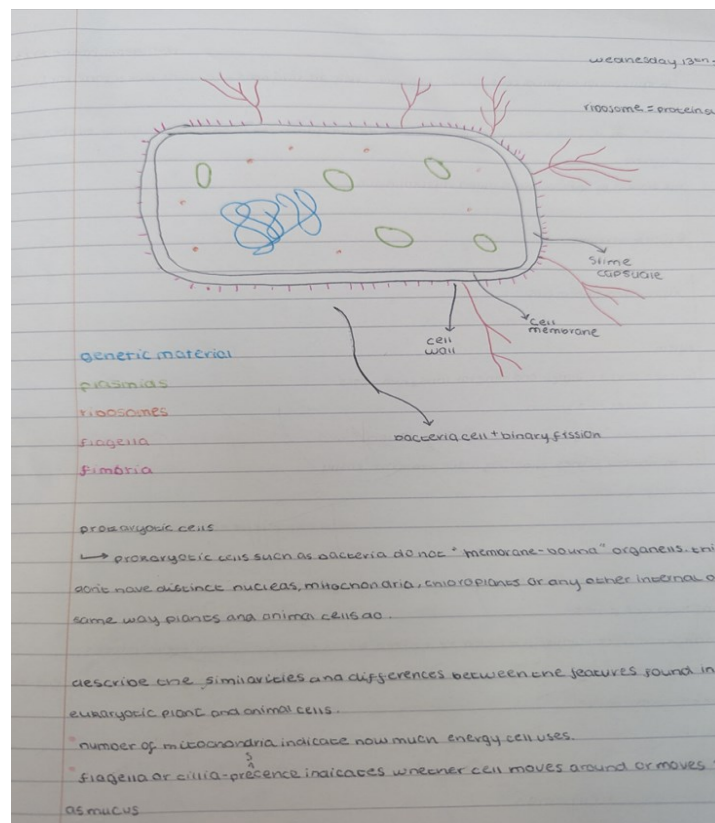 wednesday 13th
ribosome = proteins
slime
capsuale
cell
membrane
cell
wall
genetic material
plasmids
ribosomes
flagella
fimbria
bacteria cell + binary fission
prokaryotic cells
→ prokaryotic cells such as bacteria do not "membrane-bound" organells. thi
dont have distinct nucleas, mitochondria, chloroplants or any other internal o
same way plants and animal cells do.
describe the similarities and differences between the features found in
eukaryotic plant and animal cells.
* number of mitochondria indicate how much energy cell uses.
s
* flagella or cillia-presence indicates whether cell moves around or moves
as mucus